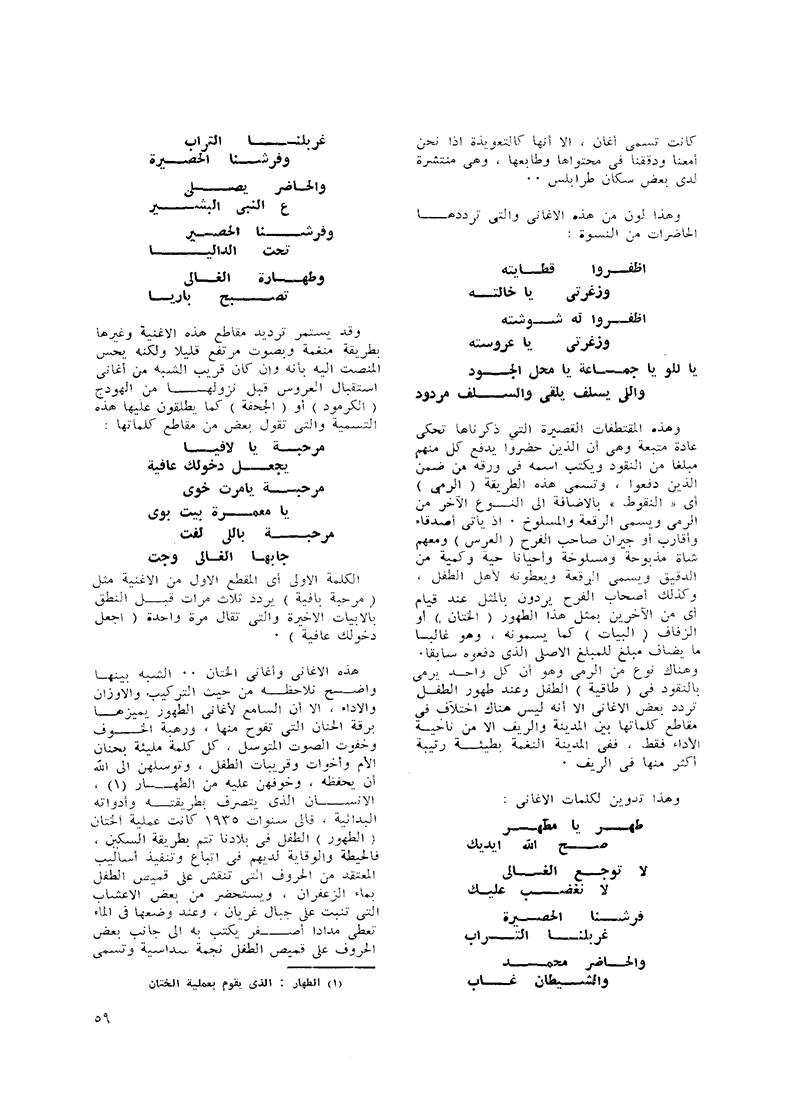 كانت تسمى أغان ، الا أنها كالتعويذة اذا نحن
أمعنا ودققنا فى محتواها وطابعها ، وهى منتشرة
لدى بعض سكان طرابلس ٠٠
وهذا لون من هذه الاغانى والتى ترددهـــا
الحاضرات من النسوة :
اظفــروا قطــايته
وزغرتى يا خالتــه
اظفــروا له شــوشته
وزغرتى يا عروسته
يا للو يا جمـــاعة يا محل الجــود
واللى يسلف يلقى والســلف مردود
وهذه المقتطفات القصيرة التي ذكرناها تحكى
عادة متبعة وهى أن الذين حضروا يدفع كل منهم
مبلغا من النقود ويكتب اسمه فى ورقه من ضمن
الذين دفعوا ، وتسمى هذه الطريقة ( الرمى )
أى « النقوط » بالاضافة الى النــوع الآخر من
الرمى ويسمى الرقعة والمسلوخ ٠ اذ يأتى أصدقاء
وأقارب أو جيران صاحب الفرح ( العرس ) ومعهم
شاة مذبوحة ومسلوخة وأحيانا حية وكمية من
الدقيق ويسمى الرقعة ويعطونه لأهل الطفل ،
وكذلك أصحاب الفرح يردون بالمثل عند قيام
أى من الآخرين بمثل هذا الطهور ( الختان ) أو
الزفاف ( البيات ) كما يسمونه ، وهو غالبــا
ما يضاف مبلغ للمبلغ الاصلى الذى دفعوه سابقا٠
وهناك نوع من الرمى وهو أن كل واحــد يرمى
بالنقود فى ( طاقية ) الطفل وعند طهور الطفــل
تردد بعض الاغانى الا أنه ليس هناك اختلاف فى
مقاطع كلماتها بين المدينة والريف الا من ناحيــة
الأداء فقط ، ففى المدينة النغمة بطيئــة رتيبة
أكثر منها فى الريف ٠
وهذا تدوين لكلمات الاغانى :
طهــر يا مطهــر
صــــح الله ايديك
لا توجــع الغــــالى
لا نغضــب عليــك
فرشـــنا الحصــيرة
غربلنـــا التــراب
والحــاضر محمــــد
والشــيطان غــاب
غربلنـــــا التراب
وفرشـــنا الحصــيرة
والحــاضر يصـــــلى
ع النبى البشـــــير
وفرشـــــنا الحصــير
تحت الداليـــــا
وطهــــارة الغــالى
تصــــبح باريـــا
وقد يستمر ترديد مقاطع هذه الاغنية وغيرها
بطريقة منغمة وبصوت مرتفع قليلا ولكنه يحس
المنصت اليه بأنه وإن كان قريب الشبه من أغانى
استقبال العروس قبل نزولهــــا من الهودج
( الكرمود ) أو ( الجحفة ) كما يطلقون عليها هذه
التسمية والتى تقول بعض من مقاطع كلماتها :
مرحبــة يا لافيــا
يجعــــل دخولك عافية
مرحبـــة يامرت خوى
يا معمـــرة بيت بوى
مرحبــــة باللى لفت
جابهــا الغــالى وجت
الكلمة الاولى أى المقطع الاول من الاغنية مثل
( مرحبة بافية ) يردد ثلاث مرات قبــل النطق
بالابيات الاخيرة والتى تقال مرة واحدة ( اجعل
دخولك عافية ) ٠
هذه الاغانى وأغانى الختان ٠٠ الشبه بينهــا
واضــح نلاحظــه من حيث التركيب والاوزان
والاداء ، الا أن السامع لأغانى الطهور يميزهــا
برقة الحنان التى تفوح منها ، ورهبة الخــوف
وخفوت الصوت المتوسل ، كل كلمة مليئة بحنان
الأم وأخوات وقريبات الطفل ، وتوسلهن الى الله
أن يحفظه ، وخوفهن عليه من الطهــار (١) ،
الانســـان الذى يتصرف بطريقتــه وأدواته
البدائية ، فالى سنوات ١٩٣٥ كانت عملية الختان
( الطهور ) الطفل فى بلادنا تتم بطريقة السكين ،
فالحيطة والوقاية لديهم فى اتباع وتنفيذ أساليب
المعتقد من الحروف التى تنقش على قميص الطفل
بماء الزعفران ، ويستحضر من بعض الاعشاب
التى تنبت على جبال غريان ، وعند وضعها فى الماء
تعطى مدادا أصـــفر يكتب به الى جانب بعض
الحروف على قميص الطفل نجمة سداسية وتسمى
(١) الطهار : الذى يقوم بعملية الختان
٥٩